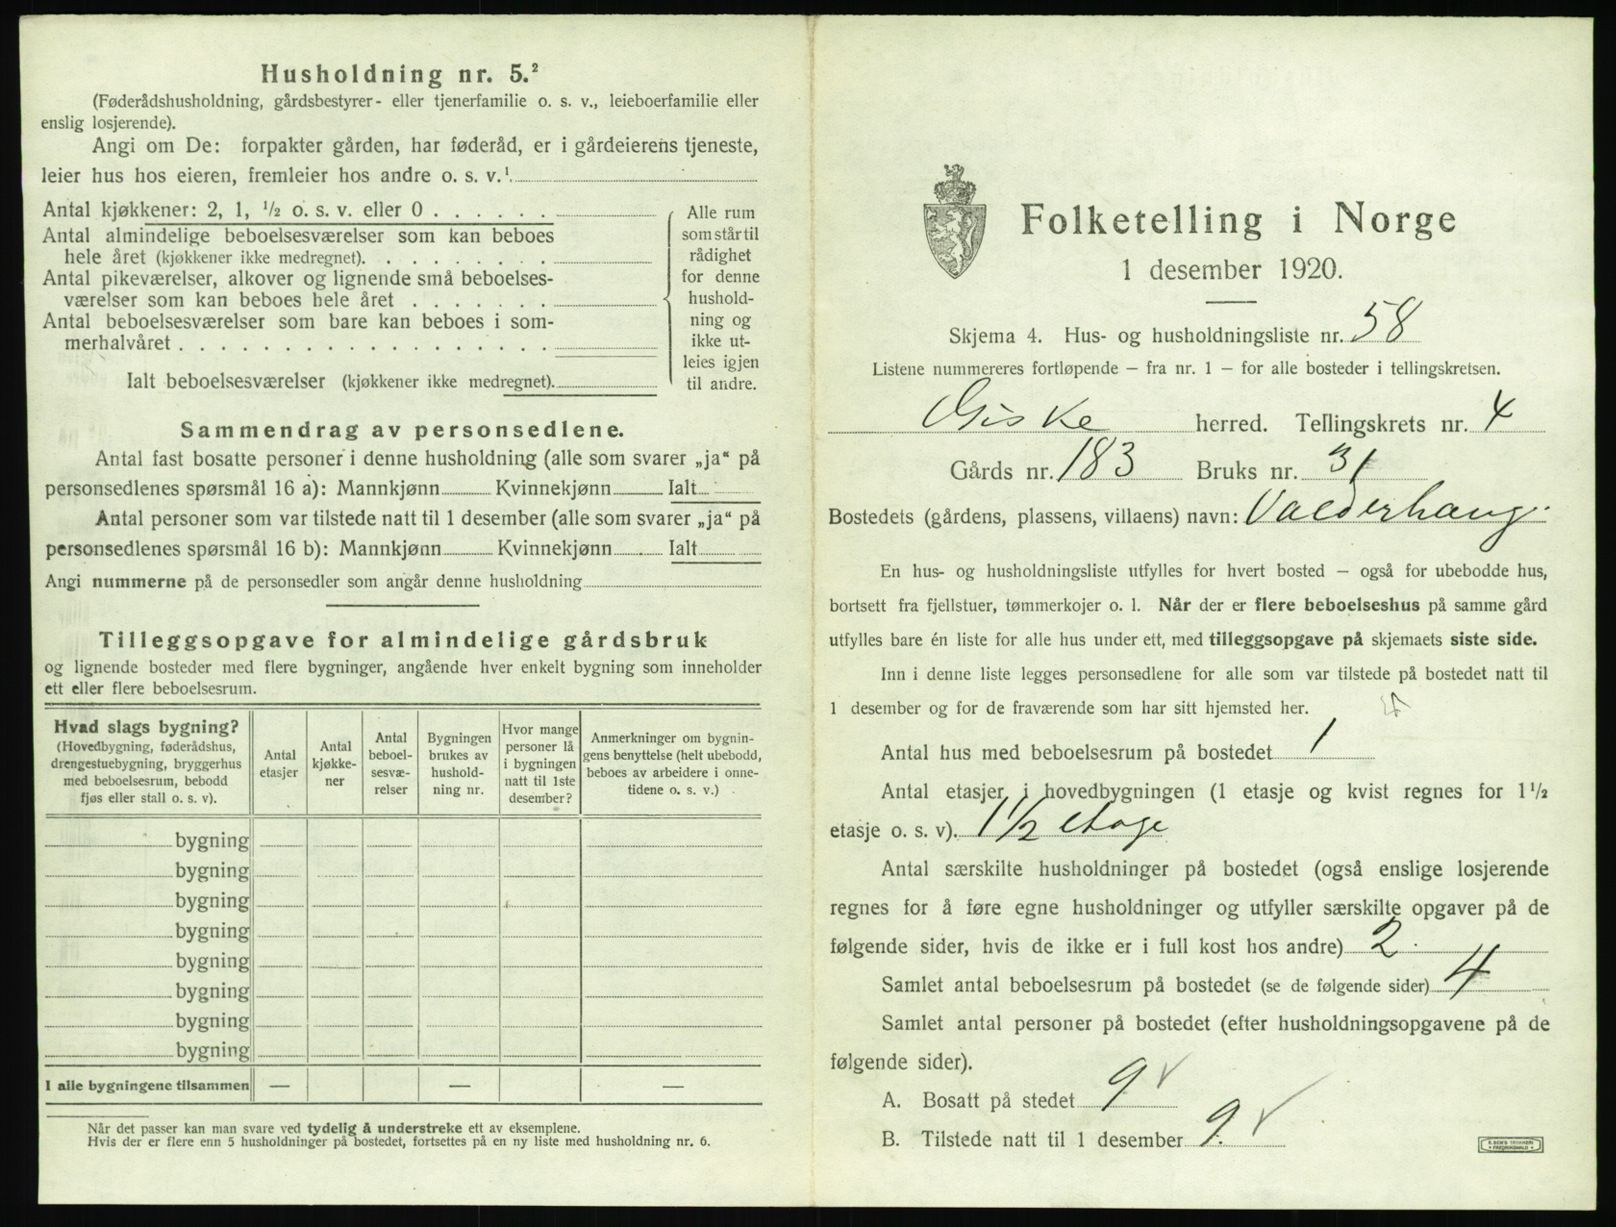 Husholdning nr. 5.²
(Føderådshusholdning, gårdsbestyrer- eller tjenerfamilie o. s. v., leieboerfamilie eller
enslig losjerende).
Angi om De: forpakter gården, har føderåd, er i gårdeierens tjeneste,
leier hus hos eieren, fremleier hos andre o. s. v.¹
Antal kjøkkener: 2, 1, ½ o. s. v. eller 0
Antal almindelige beboelsesværelser som kan beboes
hele året (kjøkkener ikke medregnet).
Antal pikeværelser, alkover og lignende små beboelses-
værelser som kan beboes hele året
Antal beboelsesværelser som bare kan beboes i som-
merhalvåret
Ialt beboelsesværelser (kjøkkener ikke medregnet).
Alle rum
som står til
rådighet
for denne
hushold-
ning og
ikke ut-
leies igjen
til andre.
Sammendrag av personsedlene.
Antal fast bosatte personer i denne husholdning (alle som svarer „ja“ på
personsedlenes spørsmål 16 a): Mannkjønn Kvinnekjønn Ialt
Antal personer som var tilstede natt til 1 desember (alle som svarer „ja“ på
personsedlenes spørsmål 16 b): Mannkjønn Kvinnekjønn Ialt
Angi nummerne på de personsedler som angår denne husholdning
Tilleggsopgave for almindelige gårdsbruk
og lignende bosteder med flere bygninger, angående hver enkelt bygning som inneholder
ett eller flere beboelsesrum.
Hvad slags bygning?
(Hovedbygning, føderådshus,
drengestuebygning, bryggerhus
med beboelsesrum, bebodd
fjøs eller stall o. s. v).
Antal
etasjer
Antal
kjøkke-
ner
Antal
beboel-
sesvæ-
relser
Bygningen
brukes av
hushold-
ning nr.
Hvor mange
personer lå
i bygningen
natt til 1ste
desember?
Anmerkninger om bygnin-
gens benyttelse (helt ubebodd,
beboes av arbeidere i onne-
tidene o. s. v.)
bygning
bygning
bygning
bygning
bygning
bygning
bygning
bygning
I alle bygningene tilsammen — — —
Når det passer kan man svare ved tydelig å understreke ett av eksemplene.
Hvis der er flere enn 5 husholdninger på bostedet, fortsettes på en ny liste med husholdning nr. 6.
Folketelling i Norge
1 desember 1920.
Skjema 4. Hus- og husholdningsliste nr. 58
Listene nummereres fortløpende — fra nr. 1 — for alle bosteder i tellingskretsen.
Giske herred. Tellingskrets nr. 4
Gårds nr. 183 Bruks nr. 31
Bostedets (gårdens, plassens, villaens) navn: Valderhaug.
En hus- og husholdningsliste utfylles for hvert bosted — også for ubebodde hus,
bortsett fra fjellstuer, tømmerkojer o. l. Når der er flere beboelseshus på samme gård
utfylles bare én liste for alle hus under ett, med tilleggsopgave på skjemaets siste side.
Inn i denne liste legges personsedlene for alle som var tilstede på bostedet natt til
1 desember og for de fraværende som har sitt hjemsted her.
Antal hus med beboelsesrum på bostedet 1
Antal etasjer i hovedbygningen (1 etasje og kvist regnes for 1½
etasje o. s. v). 1½ etage
Antal særskilte husholdninger på bostedet (også enslige losjerende
regnes for å føre egne husholdninger og utfyller særskilte opgaver på de
følgende sider, hvis de ikke er i full kost hos andre) 2.
Samlet antal beboelsesrum på bostedet (se de følgende sider) 4
Samlet antal personer på bostedet (efter husholdningsopgavene på de
følgende sider).
A. Bosatt på stedet 9 ✓
B. Tilstede natt til 1 desember 9. ✓